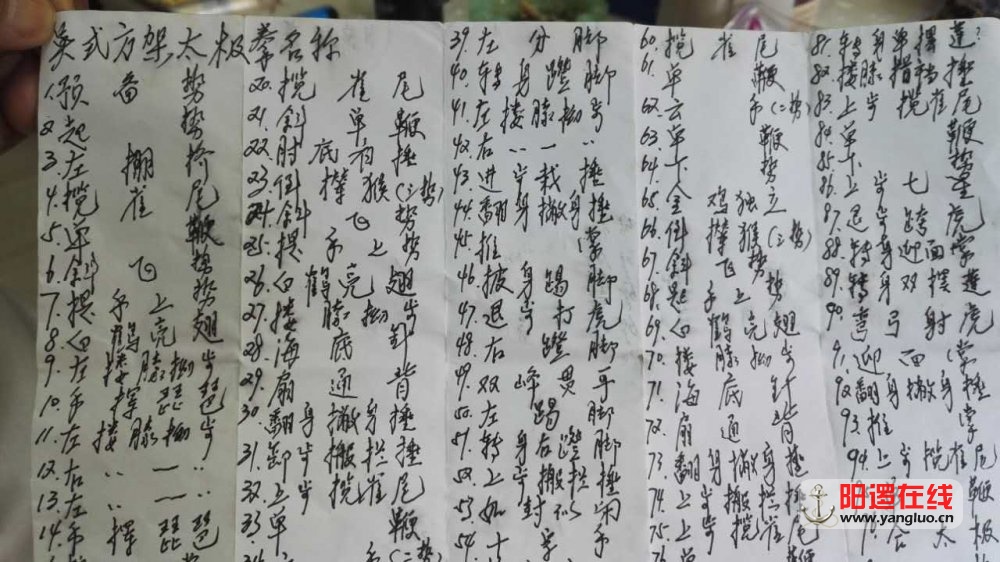 吴式方架太极拳名称
1.预备势
2.起势
3.左掤捋
4.揽雀尾
5.单鞭
6.斜飞势
7.提手上势
8.白鹤亮翅
9.左搂膝拗步
10.手挥琵琶
11.左搂膝拗步
12.右〃一〃
13.左〃一〃
14.手挥琵琶
20.揽雀尾
21.斜单鞭
22.肘底看捶
23.倒撵猴(三势)
24.斜飞势
25.提手上势
26.白鹤亮翅
27.搂膝拗步
28.海底针
29.扇通背
30.翻身撇身捶
31.卸步搬拦捶
32.上步揽雀尾
33.单鞭
39.左分脚
40.转身蹬脚
41.左搂膝拗步
42.右〃一〃
43.进步栽捶
44.翻身撇身捶
45.推掌
46.披身踢脚
47.退步打虎
48.右蹬脚
49.双峰贯耳
50.左踢脚
51.转身右蹬脚
52.上步搬拦捶
53.如封似闭
54.十字手
60.揽雀尾
61.单鞭
62.云手(二势)
63.单鞭
64.下势
65.金鸡独立
66.倒撵猴(三势)
67.斜飞势
68.提手上势
69.白鹤亮翅
70.搂膝拗步
71.海底针
72.扇通背
73.翻身撇身捶
74.上步搬拦捶
75.上步揽雀尾
76.单鞭
81.转身单摆莲
82.搂膝指裆捶
83.上步揽雀尾
84.单鞭
85.下势
86.上步七星
87.退步跨虎
88.转身迎面掌
89.转身双摆莲
90.弯弓射虎
91.迎面掌
92.翻身撇身捶
93.推掌
94.上步揽雀尾
阳逻在线
www.yangluo.cn